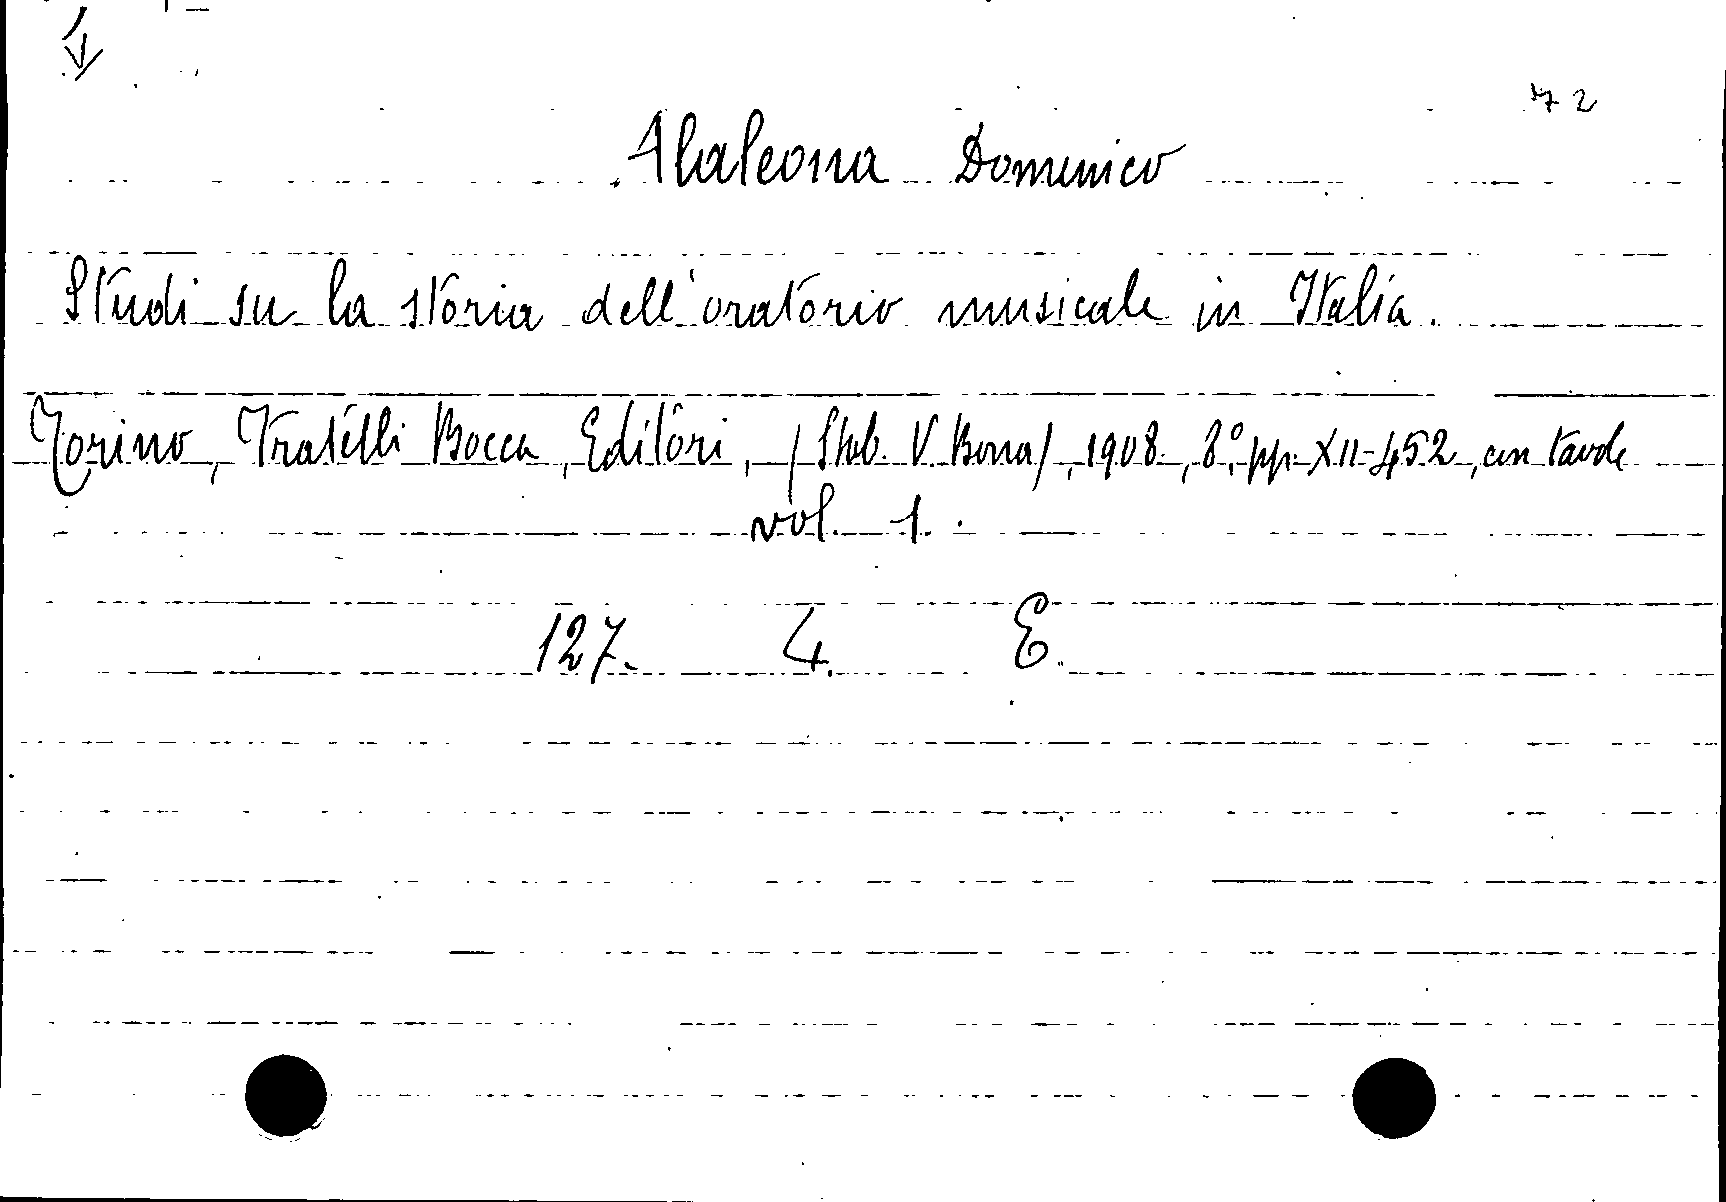 72
Alaleona Domenico
Studi su la storia dell'oratorio musicale in Italia.
Torino, Fratelli Bocca, Editori, (Stab. V. Bona), 1908., 8°, pp. XII-452, con tavole
vol. 1.
127. 4. E.